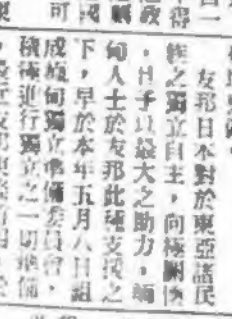 友邦日本對於東亞諸民
族之獨立自主，向極關懷
，且予以最大之助力，緬
甸人士於友邦此種支援之
下，早於本年五月八日組
成緬甸獨立準備委員會，
積極進行獨立之一切準備